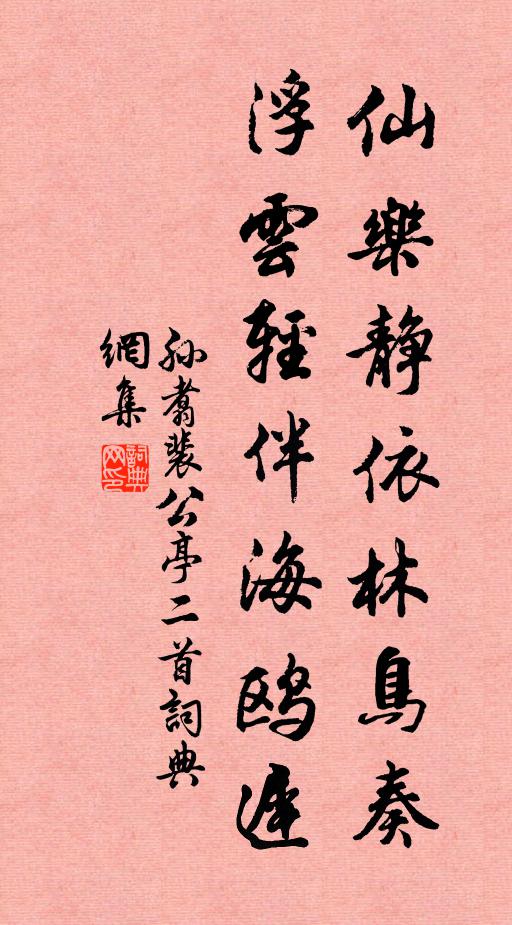 仙樂靜依林鳥奏
浮雲輕伴海鷗遲
孙翥裴公亭二首詞典
網集
詞典网印